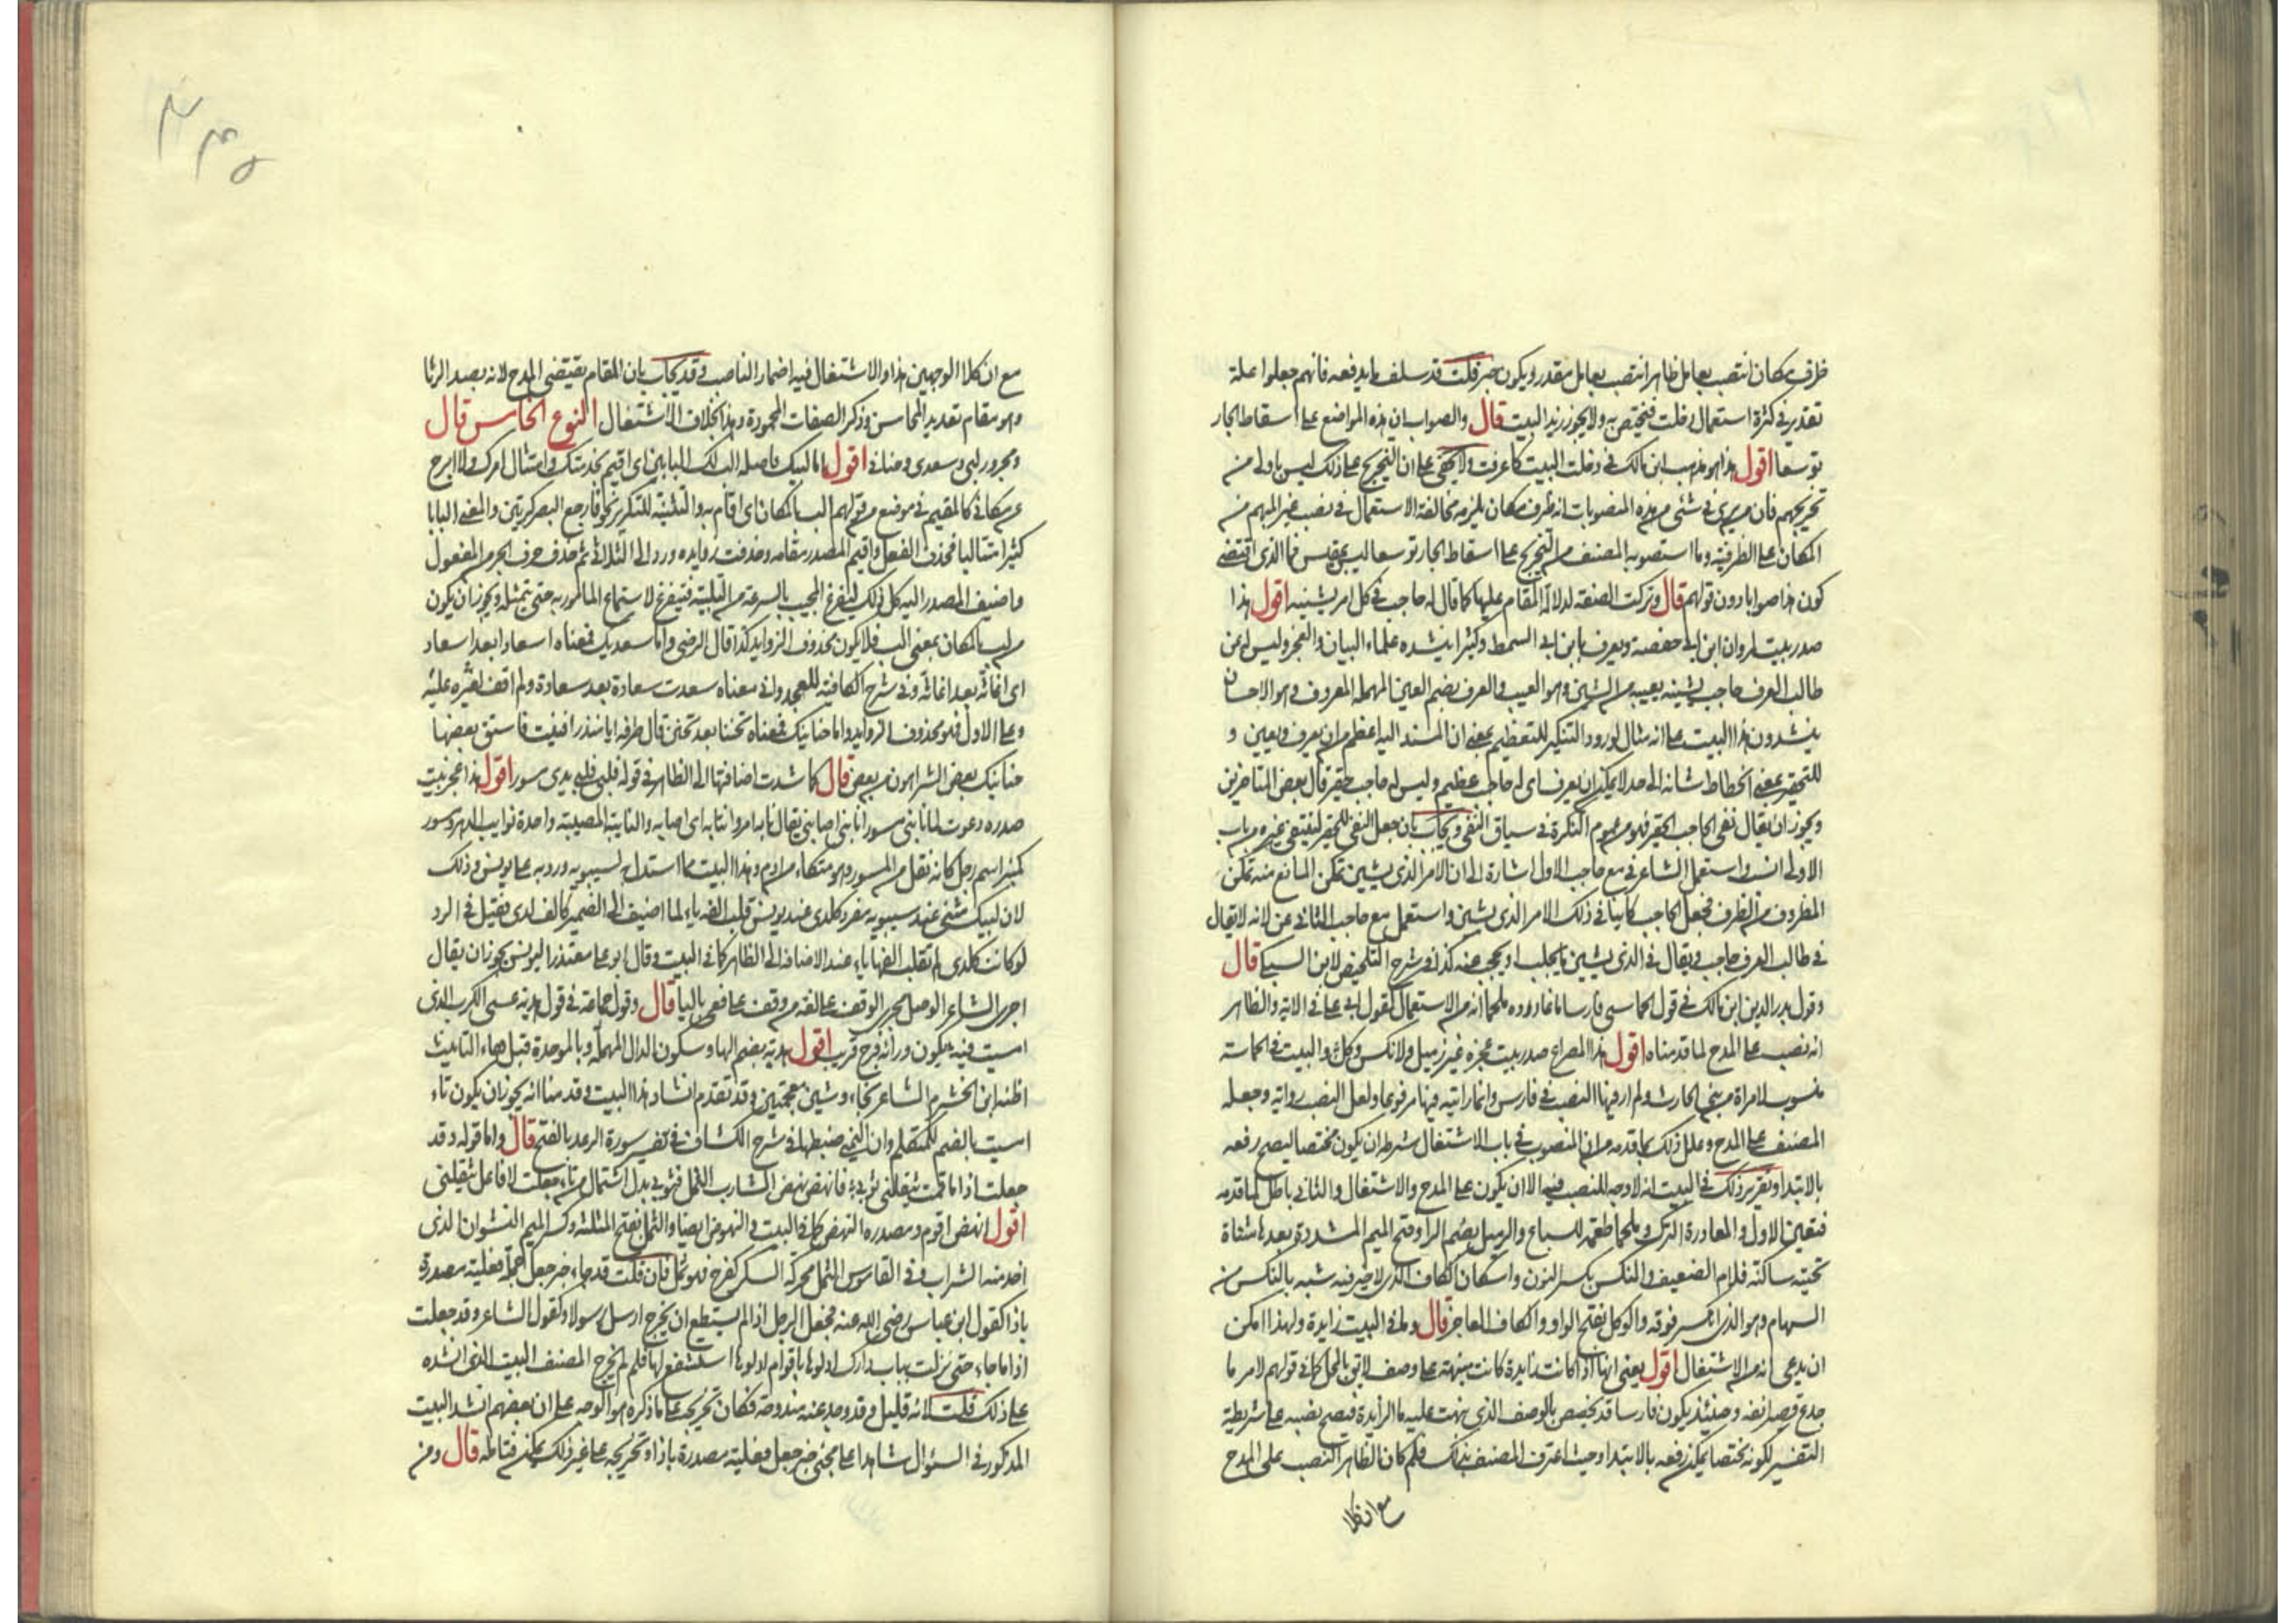 ظرف مكان انتصب بعامل ظاهر انتصب بعامل مقدر ويكون خبر قلت قد سلف ما يدفعه فانهم جعلوا علة
تقدير في كثرة استعمال دخلت فيختص به ولا يجوز زيد البيت قال والصواب ان هذه المواضع على اسقاط الجار
توسعا اقول هذا هو مذهب ابن مالك في دخلت البيت كما عرفت ولا يخفى على ان التخريج على ذلك ليس باولى من
تخريجهم فان من يرى في شئ من هذه المنصوبات انه ظرف مكان يلزمه مخالفة الاستعمال في نصب غير المبهم من
المكان على الظرفية وما استصوبه المصنف من التخريج على اسقاط الجار توسعا ليس بمقيس فما الذي اقتضى
كون هذا صوابا دون قولهم قال وتركت الصفة لدلالة المقام عليها كما قال له حاجب في كل امر يشينه اقول هذا
صدر بيت لمروان ابن ابي حفصة ويعرف بابن ابي السمط وكثيرا ينشده علماء البيان والعجز وليس له عن
طالب العرف حاجب يشينه يعيبه من الشين وهو العيب والعرف بضم العين المهملة المعروف وهو الاحسان
ينشدون هذا البيت على انه مثال لورود التنكير للتعظيم بمعنى ان المسند اليه اعظم من ان يعرف ويعين و
للتحقير بمعنى انحطاط شانه الى حد لا يمكن ان يعرف اي له حاجب عظيم وليس له حاجب حقير قال بعض المتاخرين
ويجوز ان يقال نفي الحاجب الحقير فلو من عموم النكرة في سياق النفي ويجاب بان جعل النفي للحقير لينتفي غيره من باب
الاولى انسب واستعمل الشاعر في مع حاجب الاول اشارة الى ان الامر الذي يشين تمكن المانع منه تمكن
المظروف من الظرف فجعل الحاجب كاينا في ذلك الامر الذي يشين واستعمل مع حاجب الثاني عن لانه لا يقال
في طالب العرف حاجب ويقال في الذي يشين ما يجلب او يحجب عنه كذا في شرح التلخيص لابن السبكي قال
وقول بدر الدين ابن مالك في قول الحماسي فارسا ما غادروه ملحما انه من الاستعمال كقول ابي علي في الاية والظاهر
انه نصب على المدح لما قدمناه اقول هذا المصراع صدر بيت عجزه غير زميل ولا نكس وكل والبيت في الحماسة
منسوب لامراة من بني الحارث ولم ار فيها النصب في فارس وانما رايته فيها مرفوعا ولعل النصب رواية وجعله
المصنف على المدح وعلل ذلك بما قدمه من ان المنصوب في باب الاشتغال شرطه ان يكون مختصا ليصح رفعه
بالابتدا وتقرير ذلك في البيت انه لا وجه للنصب فيه الا ان يكون على المدح والاشتغال والثاني باطل لما قدمه
فتعين الاول والمغادرة الترك وملحما طعمة للسباع والزميل بضم الزا وفتح الميم المشددة بعدها مثناة
تحتية ساكنة فلام الضعيف والنكس بكسر النون واسكان الكاف الذي لا خير فيه شبه بالنكس من
السهام وهو الذي انكسر فوقه والوكل بفتح الواو والكاف العاجز قال وما في البيت زايدة ولهذا امكن
ان يدعى انه من الاشتغال اقول يعني انها اذا كانت زايدة كانت منبهة على وصف لايق بالمحل كما في قولهم لامر ما
جدع قصير انفه وحينئذ يكون فارسا قد تخصص بالوصف الذي نبهت عليه ما الزايدة فيصح نصبه على شريطة
التفسير لكونه مختصا يمكن رفعه بالابتدا وحيث اعترف المصنف بذلك فلم كان الظاهر النصب على المدح
مع ان كلا
مع ان كلا الوجهين هذا والاشتغال فيه اضمار الناصب وقد يجاب بان المقام يقتضي المدح لانه بصدد الرثا
وهو مقام تعديد المحاسن وذكر الصفات المحمودة وهذا بخلاف الاشتغال النوع الخامس قال
ومجرور لبي وسعدي وحناني اقول اما لبيك فاصله الب لك البابين اي اقيم بخدمتك وامتثال امرك ولا ابرح
عن مكاني كالمقيم في موضع من قولهم الب بالمكان اي اقام به والتثنية للتكرير نحو فارجع البصر كرتين والمعنى البابا
كثيرا متتاليا فحذف الفعل واقيم المصدر مقامه وحذفت زوايده ورد الى الثلاثي ثم حذف حرف الجر من المفعول
واضيف المصدر اليه كل ذلك ليفرغ المجيب بالسرعة من التلبية فيتفرغ لاستماع المامور به حتى يتمثله ويجوز ان يكون
من لب بالمكان بمعنى الب فلا يكون محذوف الزوايد كذا قال الرضي واما سعديك فمعناه اسعادا بعد اسعاد
اي اغاثة بعد اغاثة وفي شرح الكافية للعجدواني معناه سعدت سعادة بعد سعادة ولم اقف لغيره عليه
وعلى الاول فهو محذوف الزوايد واما حنانيك فمعناه تحننا بعد تحنن قال طرفة ابا منذر افنيت فاستبق بعضها
حنانيك بعض الشر اهون من بعض قال كما شدت اضافتها الى الظاهر في قوله فلبي فلبي يدي مسور اقول هذا عجز بيت
صدره دعوت لما نابني مسورا نابني اصابني يقال نابه امر وانتابه اي اصابه والنايبة المصيبة واحدة نوايب الدهر ومسور
كمنبر اسم رجل كانه نقل من المسور وهو متكاء من ادم وهذا البيت مما استدل به لسيبويه ورد به على يونس وذلك
لان لبيك مثنى عند سيبويه مفرد كلدى عند يونس قلبت الفه ياء لما اضيف الى الضمير كالف لدى فقيل في الرد
لو كانت كلدى لم تقلب الفها ياء عند الاضافة الى الظاهر كما في البيت وقال ابو علي معتذرا ليونس يجوز ان يقال
اجرى الشاعر الوصل مجرى الوقف على لغة من وقف على افعى باليا قال وقول جماعة في قول هدبة عسى الكرب الذي
امسيت فيه يكون وراءه فرج قريب اقول هدبة بضم الها وسكون الدال المهملة وبالموحدة قبل هاء التانيث
اظنه ابن الخشرم الشاعر بخاء وشين معجمتين وقد تقدم انشاد هذا البيت وقدمنا انه يجوز ان يكون تاء
امسيت بالضم للمتكلم وان اليمني ضبطها في شرح الكشاف في تفسير سورة الرعد بالفتح قال واما قوله وقد
جعلت اذا ما قمت يثقلني ثوبي فانهض نهض الشارب الثمل فثوبي بدل اشتمال من تاء جعلت لا فاعل يثقلني
اقول انهض اقوم ومصدره النهض كما في البيت والنهوض ايضا والثمل بفتح المثلثة وكسر الميم النشوان الذي
اخذ منه الشراب وفي القاموس الثمل محركة السكر كفرح فهو ثمل فان قلت قد جاء خبر جعل جملة فعلية مصدرة
باذا كقول ابن عباس رضي الله عنه فجعل الرجل اذا لم يستطع ان يخرج ارسل رسولا وكقول الشاعر وقد جعلت
اذا ما
على ذلك قلت لانه قليل وقد وجد عنه مندوحة فكان تخريجه على ما ذكره هو الوجه على ان بعضهم انشد البيت
المذكور في السئوال شاهدا على مجئ خبر جعل فعلية مصدرة باذا وتخريجه على غير ذلك ممكن فتامله قال ومن